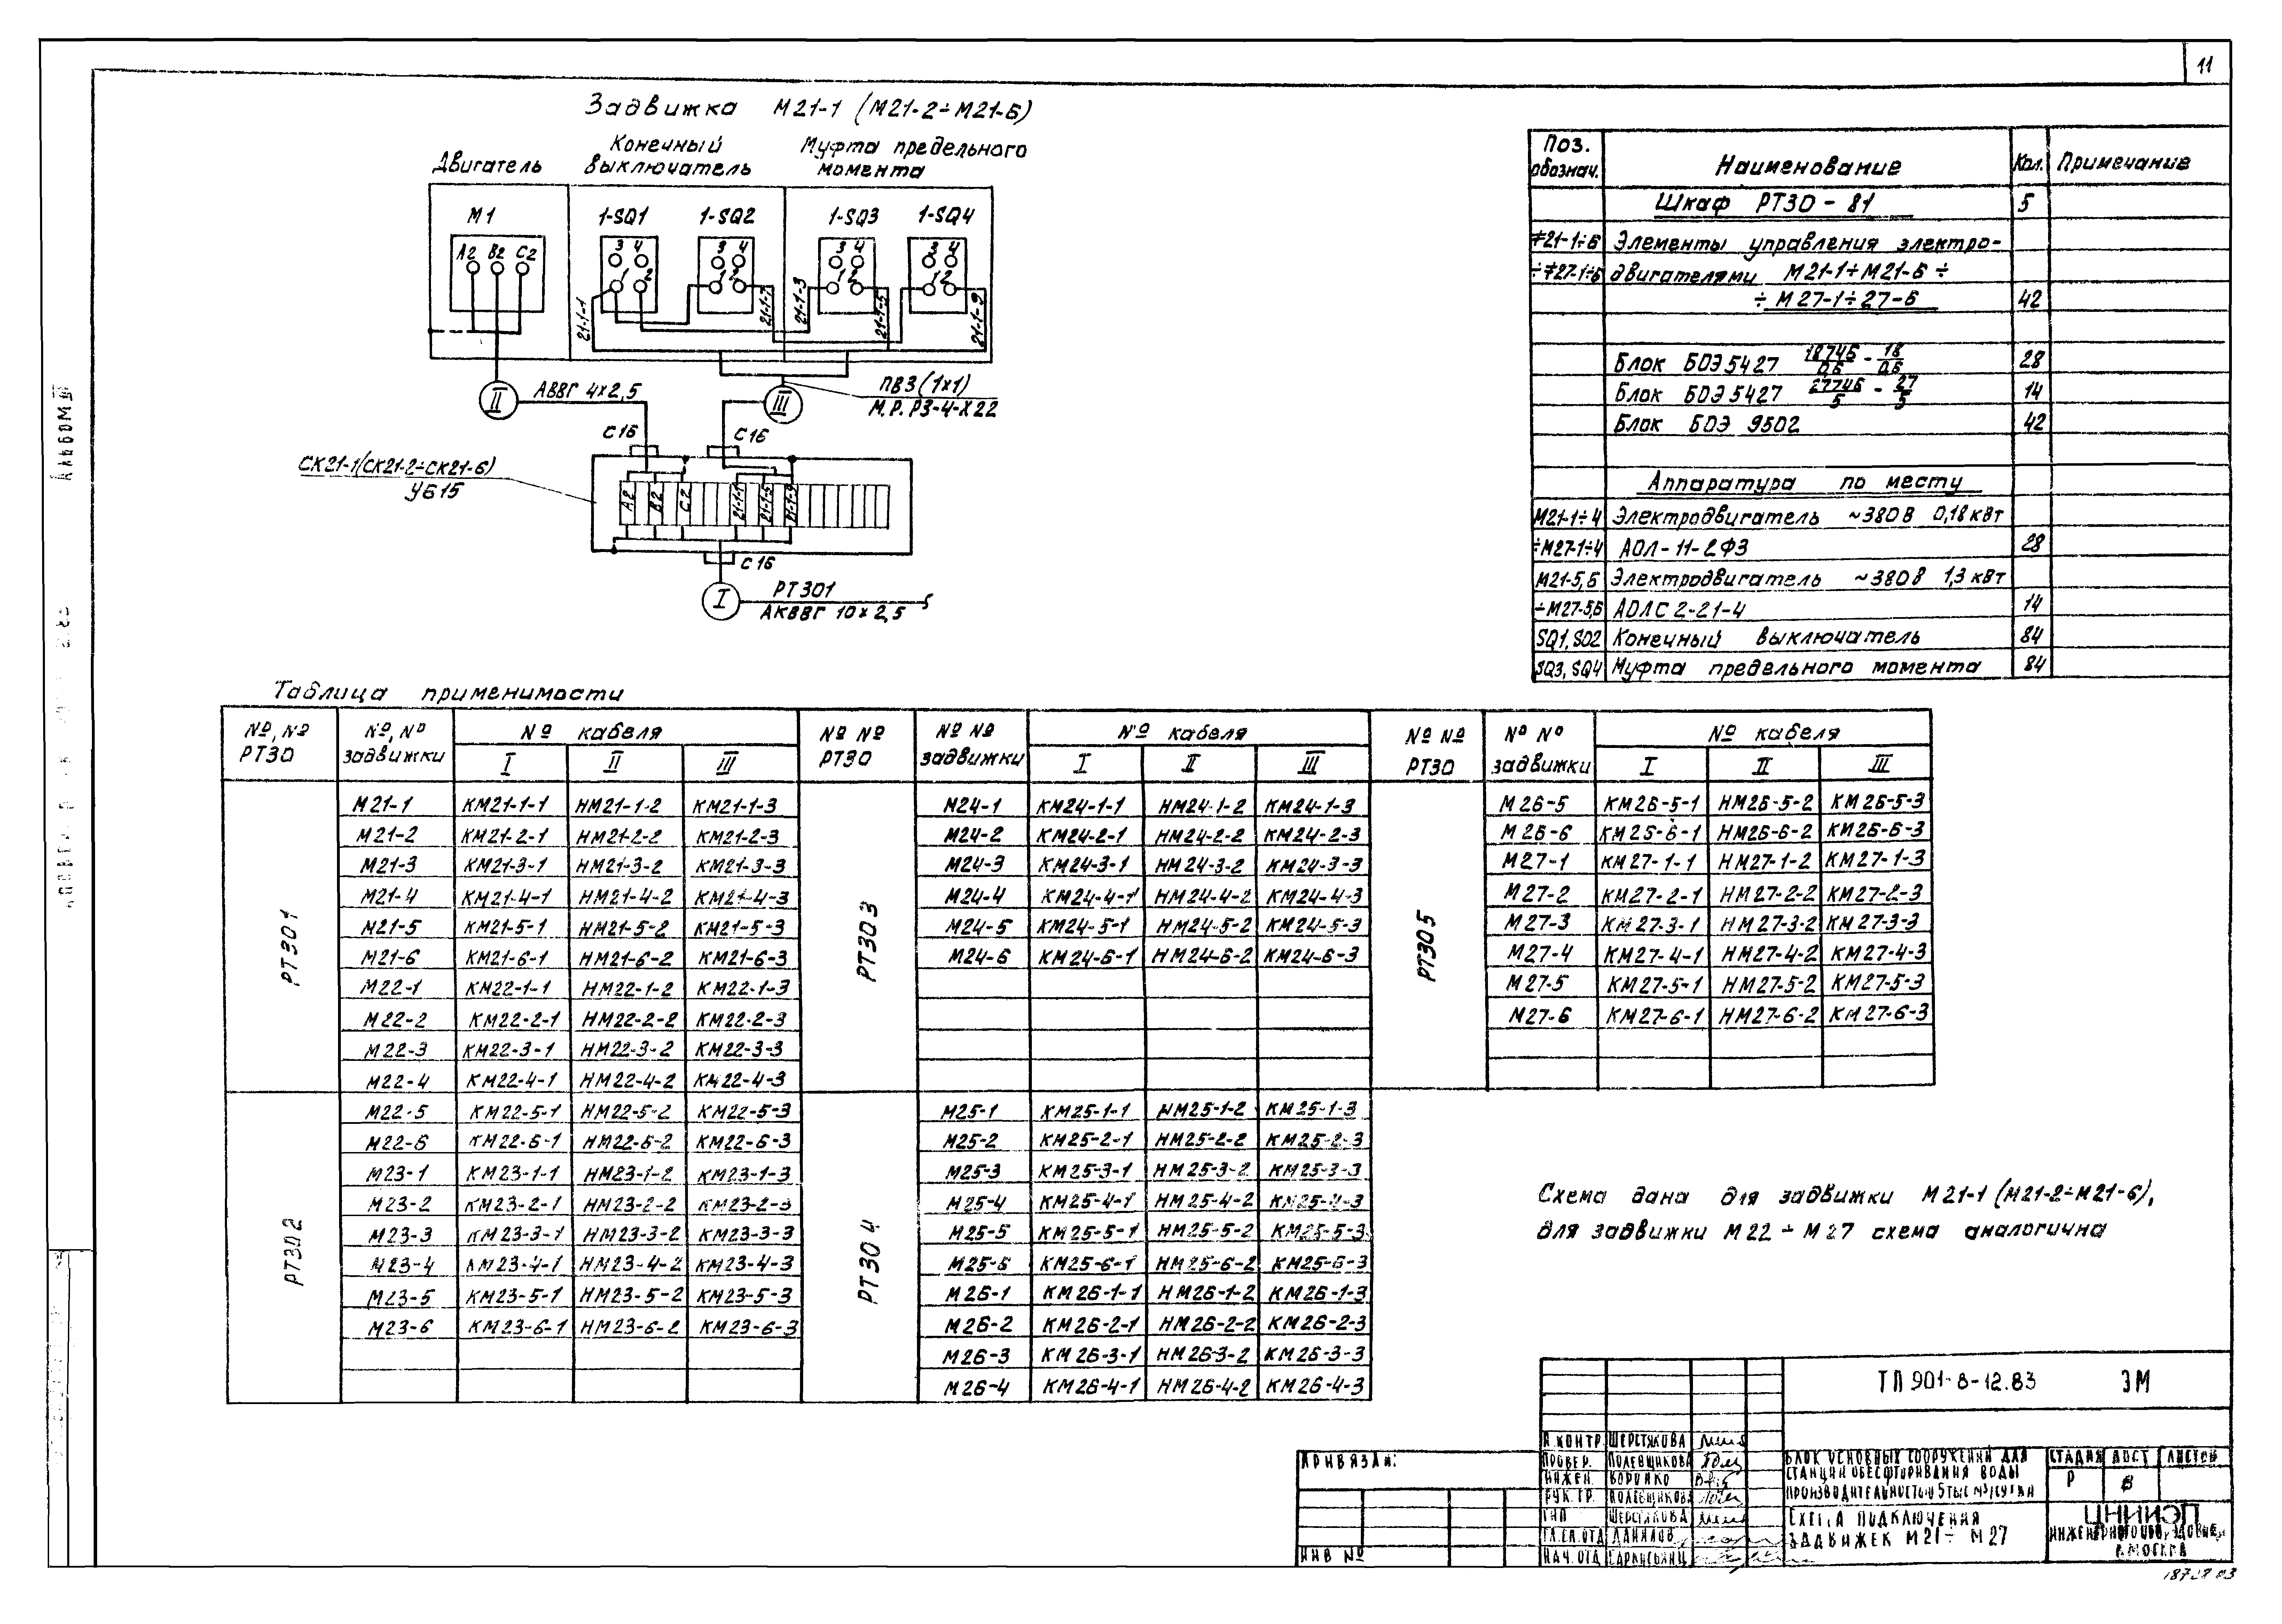 11
Альбом III
Задвижка М21-1 (М21-2÷М21-6)
Двигатель
Конечный выключатель
Муфта предельного момента
М1
А2 В2 С2
1-SQ1
3 4
1 2
1-SQ2
3 4
1 2
1-SQ3
3 4
1 2
1-SQ4
3 4
1 2
21-1-1
21-1-7
21-1-3
21-1-5
21-1-9
II
АВВГ 4×2,5
III
ПВ3 (1×1)
М.Р. РЗ-4-Х22
С16
С16
СК21-1(СК21-2÷СК21-6)
У615
А2 В2 С2 21-1-1 21-1-5 21-1-9
С16
I
РТ301
АКВВГ 10×2,5
Поз. обознач. Наименование Кол. Примечание
Шкаф РТ30-81 5
≠21-1÷6 Элементы управления электро-
÷≠27-1÷6 двигателями М21-1÷М21-6 ÷
÷ М27-1÷27-6 42
Блок БОЭ5427 1874Б/0,6 - 18/0,6 28
Блок БОЭ5427 2774Б/5 - 27/5 14
Блок БОЭ 9502 42
Аппаратура по месту
М21-1÷4 Электродвигатель ~380В 0,18кВт
÷М27-1÷4 АОЛ-11-2Ф3 28
М21-5,6 Электродвигатель ~380В 1,3кВт
÷М27-5,6 АОЛС2-21-4 14
SQ1, SQ2 Конечный выключатель 84
SQ3, SQ4 Муфта предельного момента 84
Таблица применимости
№,№ РТ30 №,№ задвижки № кабеля
I II III
РТ301
М21-1 КМ21-1-1 НМ21-1-2 КМ21-1-3
М21-2 КМ21-2-1 НМ21-2-2 КМ21-2-3
М21-3 КМ21-3-1 НМ21-3-2 КМ21-3-3
М21-4 КМ21-4-1 НМ21-4-2 КМ21-4-3
М21-5 КМ21-5-1 НМ21-5-2 КМ21-5-3
М21-6 КМ21-6-1 НМ21-6-2 КМ21-6-3
М22-1 КМ22-1-1 НМ22-1-2 КМ22-1-3
М22-2 КМ22-2-1 НМ22-2-2 КМ22-2-3
М22-3 КМ22-3-1 НМ22-3-2 КМ22-3-3
М22-4 КМ22-4-1 НМ22-4-2 КМ22-4-3
РТ302
М22-5 КМ22-5-1 НМ22-5-2 КМ22-5-3
М22-6 КМ22-6-1 НМ22-6-2 КМ22-6-3
М23-1 КМ23-1-1 НМ23-1-2 КМ23-1-3
М23-2 КМ23-2-1 НМ23-2-2 КМ23-2-3
М23-3 КМ23-3-1 НМ23-3-2 КМ23-3-3
М23-4 КМ23-4-1 НМ23-4-2 КМ23-4-3
М23-5 КМ23-5-1 НМ23-5-2 КМ23-5-3
М23-6 КМ23-6-1 НМ23-6-2 КМ23-6-3
№ № РТ30 № № задвижки № кабеля
I II III
РТ303
М24-1 КМ24-1-1 НМ24-1-2 КМ24-1-3
М24-2 КМ24-2-1 НМ24-2-2 КМ24-2-3
М24-3 КМ24-3-1 НМ24-3-2 КМ24-3-3
М24-4 КМ24-4-1 НМ24-4-2 КМ24-4-3
М24-5 КМ24-5-1 НМ24-5-2 КМ24-5-3
М24-6 КМ24-6-1 НМ24-6-2 КМ24-6-3
РТ304
М25-1 КМ25-1-1 НМ25-1-2 КМ25-1-3
М25-2 КМ25-2-1 НМ25-2-2 КМ25-2-3
М25-3 КМ25-3-1 НМ25-3-2 КМ25-3-3
М25-4 КМ25-4-1 НМ25-4-2 КМ25-4-3
М25-5 КМ25-5-1 НМ25-5-2 КМ25-5-3
М25-6 КМ25-6-1 НМ25-6-2 КМ25-6-3
М26-1 КМ26-1-1 НМ26-1-2 КМ26-1-3
М26-2 КМ26-2-1 НМ26-2-2 КМ26-2-3
М26-3 КМ26-3-1 НМ26-3-2 КМ26-3-3
М26-4 КМ26-4-1 НМ26-4-2 КМ26-4-3
№ № РТ30 № № задвижки № кабеля
I II III
РТ305
М26-5 КМ26-5-1 НМ26-5-2 КМ26-5-3
М26-6 КМ26-6-1 НМ26-6-2 КМ26-6-3
М27-1 КМ27-1-1 НМ27-1-2 КМ27-1-3
М27-2 КМ27-2-1 НМ27-2-2 КМ27-2-3
М27-3 КМ27-3-1 НМ27-3-2 КМ27-3-3
М27-4 КМ27-4-1 НМ27-4-2 КМ27-4-3
М27-5 КМ27-5-1 НМ27-5-2 КМ27-5-3
М27-6 КМ27-6-1 НМ27-6-2 КМ27-6-3
Схема дана для задвижки М21-1 (М21-2÷М21-6),
для задвижки М22÷М27 схема аналогична
ТП 901-8-12.83 ЭМ
Привязан:
Инв №
Н.контр. Шерстякова
Провер. Полевщикова
Инжен. Воронко
Рук. гр. Полевщикова
ГИП Шерстякова
Гл.сп.отд Данилов
Нач. отд
Блок основных сооружений для
станции обесфторивания воды
производительностью 5 тыс м3/сутки
Стадия Лист Листов
Р 8
Схема подключения
задвижек М21÷М27
ЦНИИЭП
инженерного оборудования
г. Москва